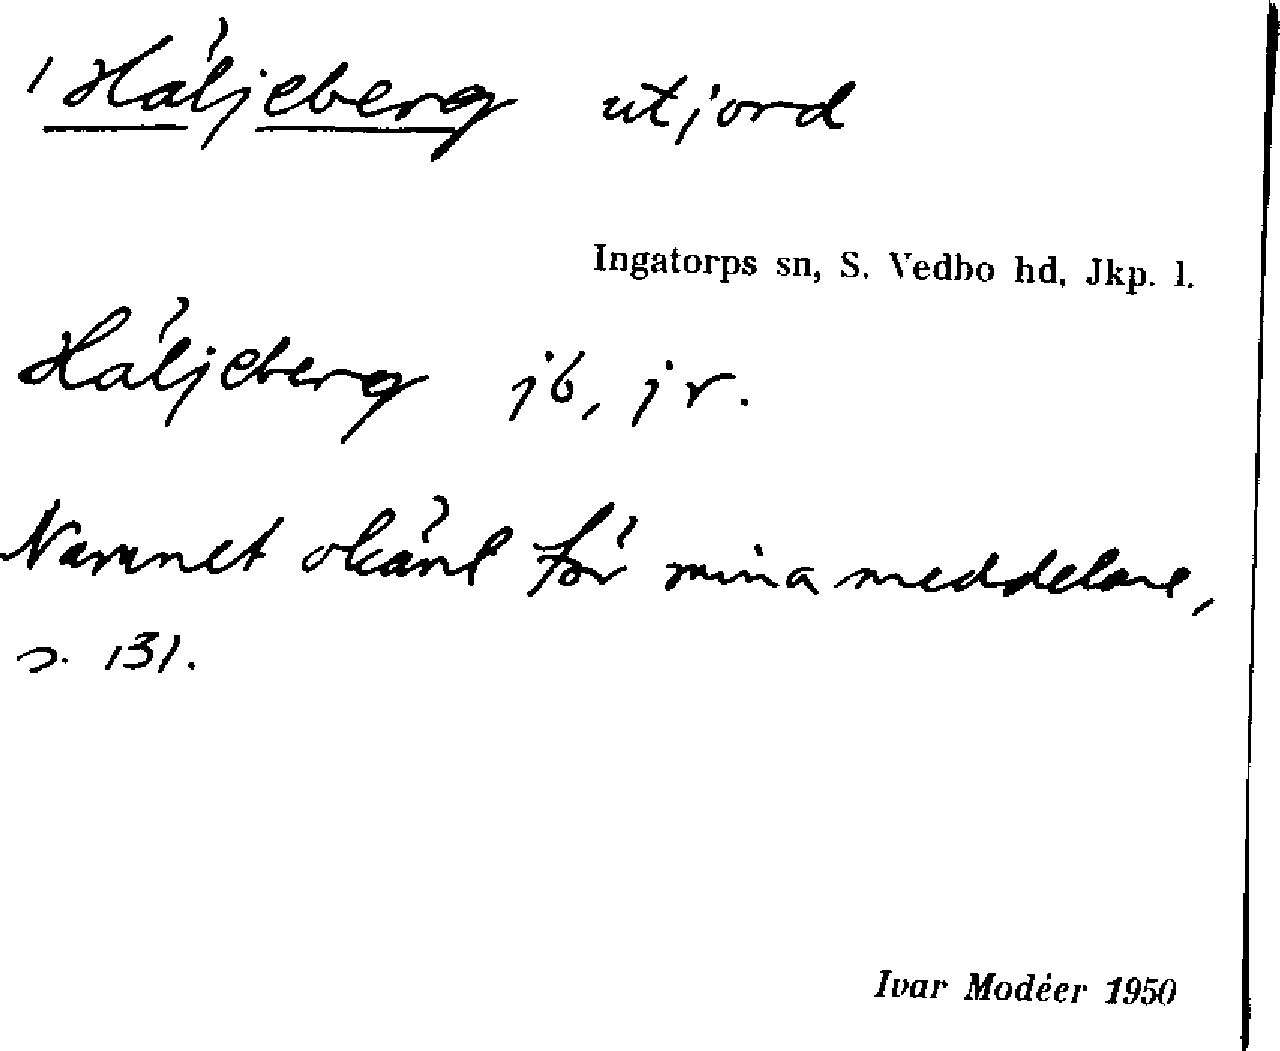 ' Häljeberg utjord
Ingatorps sn, S. Vedbo hd, Jkp. l.
Häljeberg jb, jr.
Namnet okänt för mina meddelare,
s. 131.
Ivar Modéer 1950